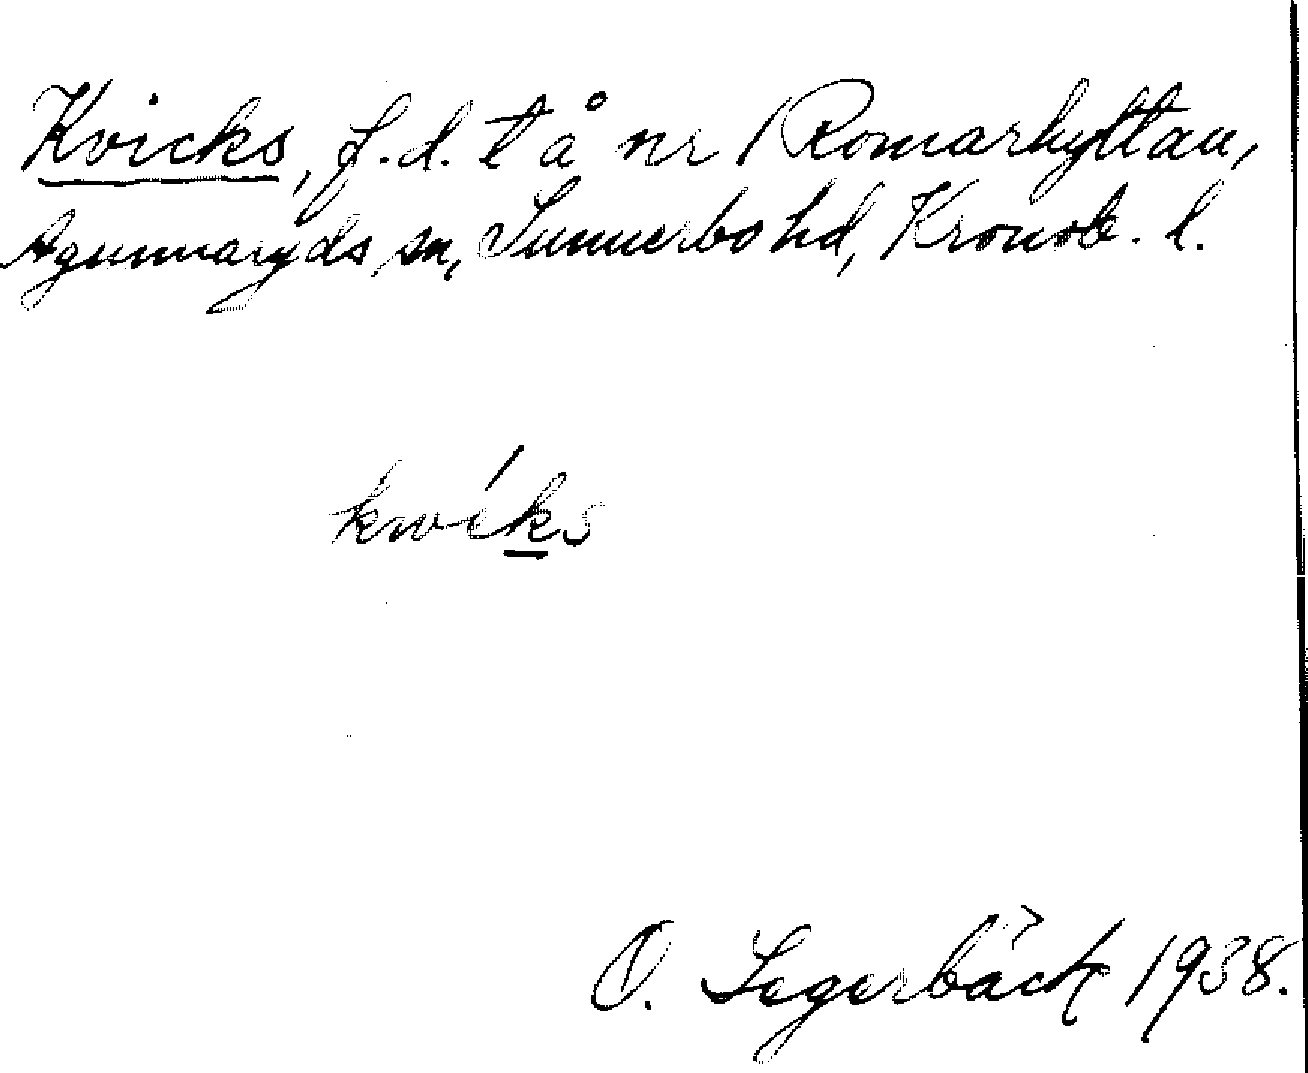 Kvicks, f.d. t å nr 1 Romarhyltan,
Agunnaryds sn, Sunnerbo hd, Kronob. l.
kwíks
O. Segerbäck 1938.